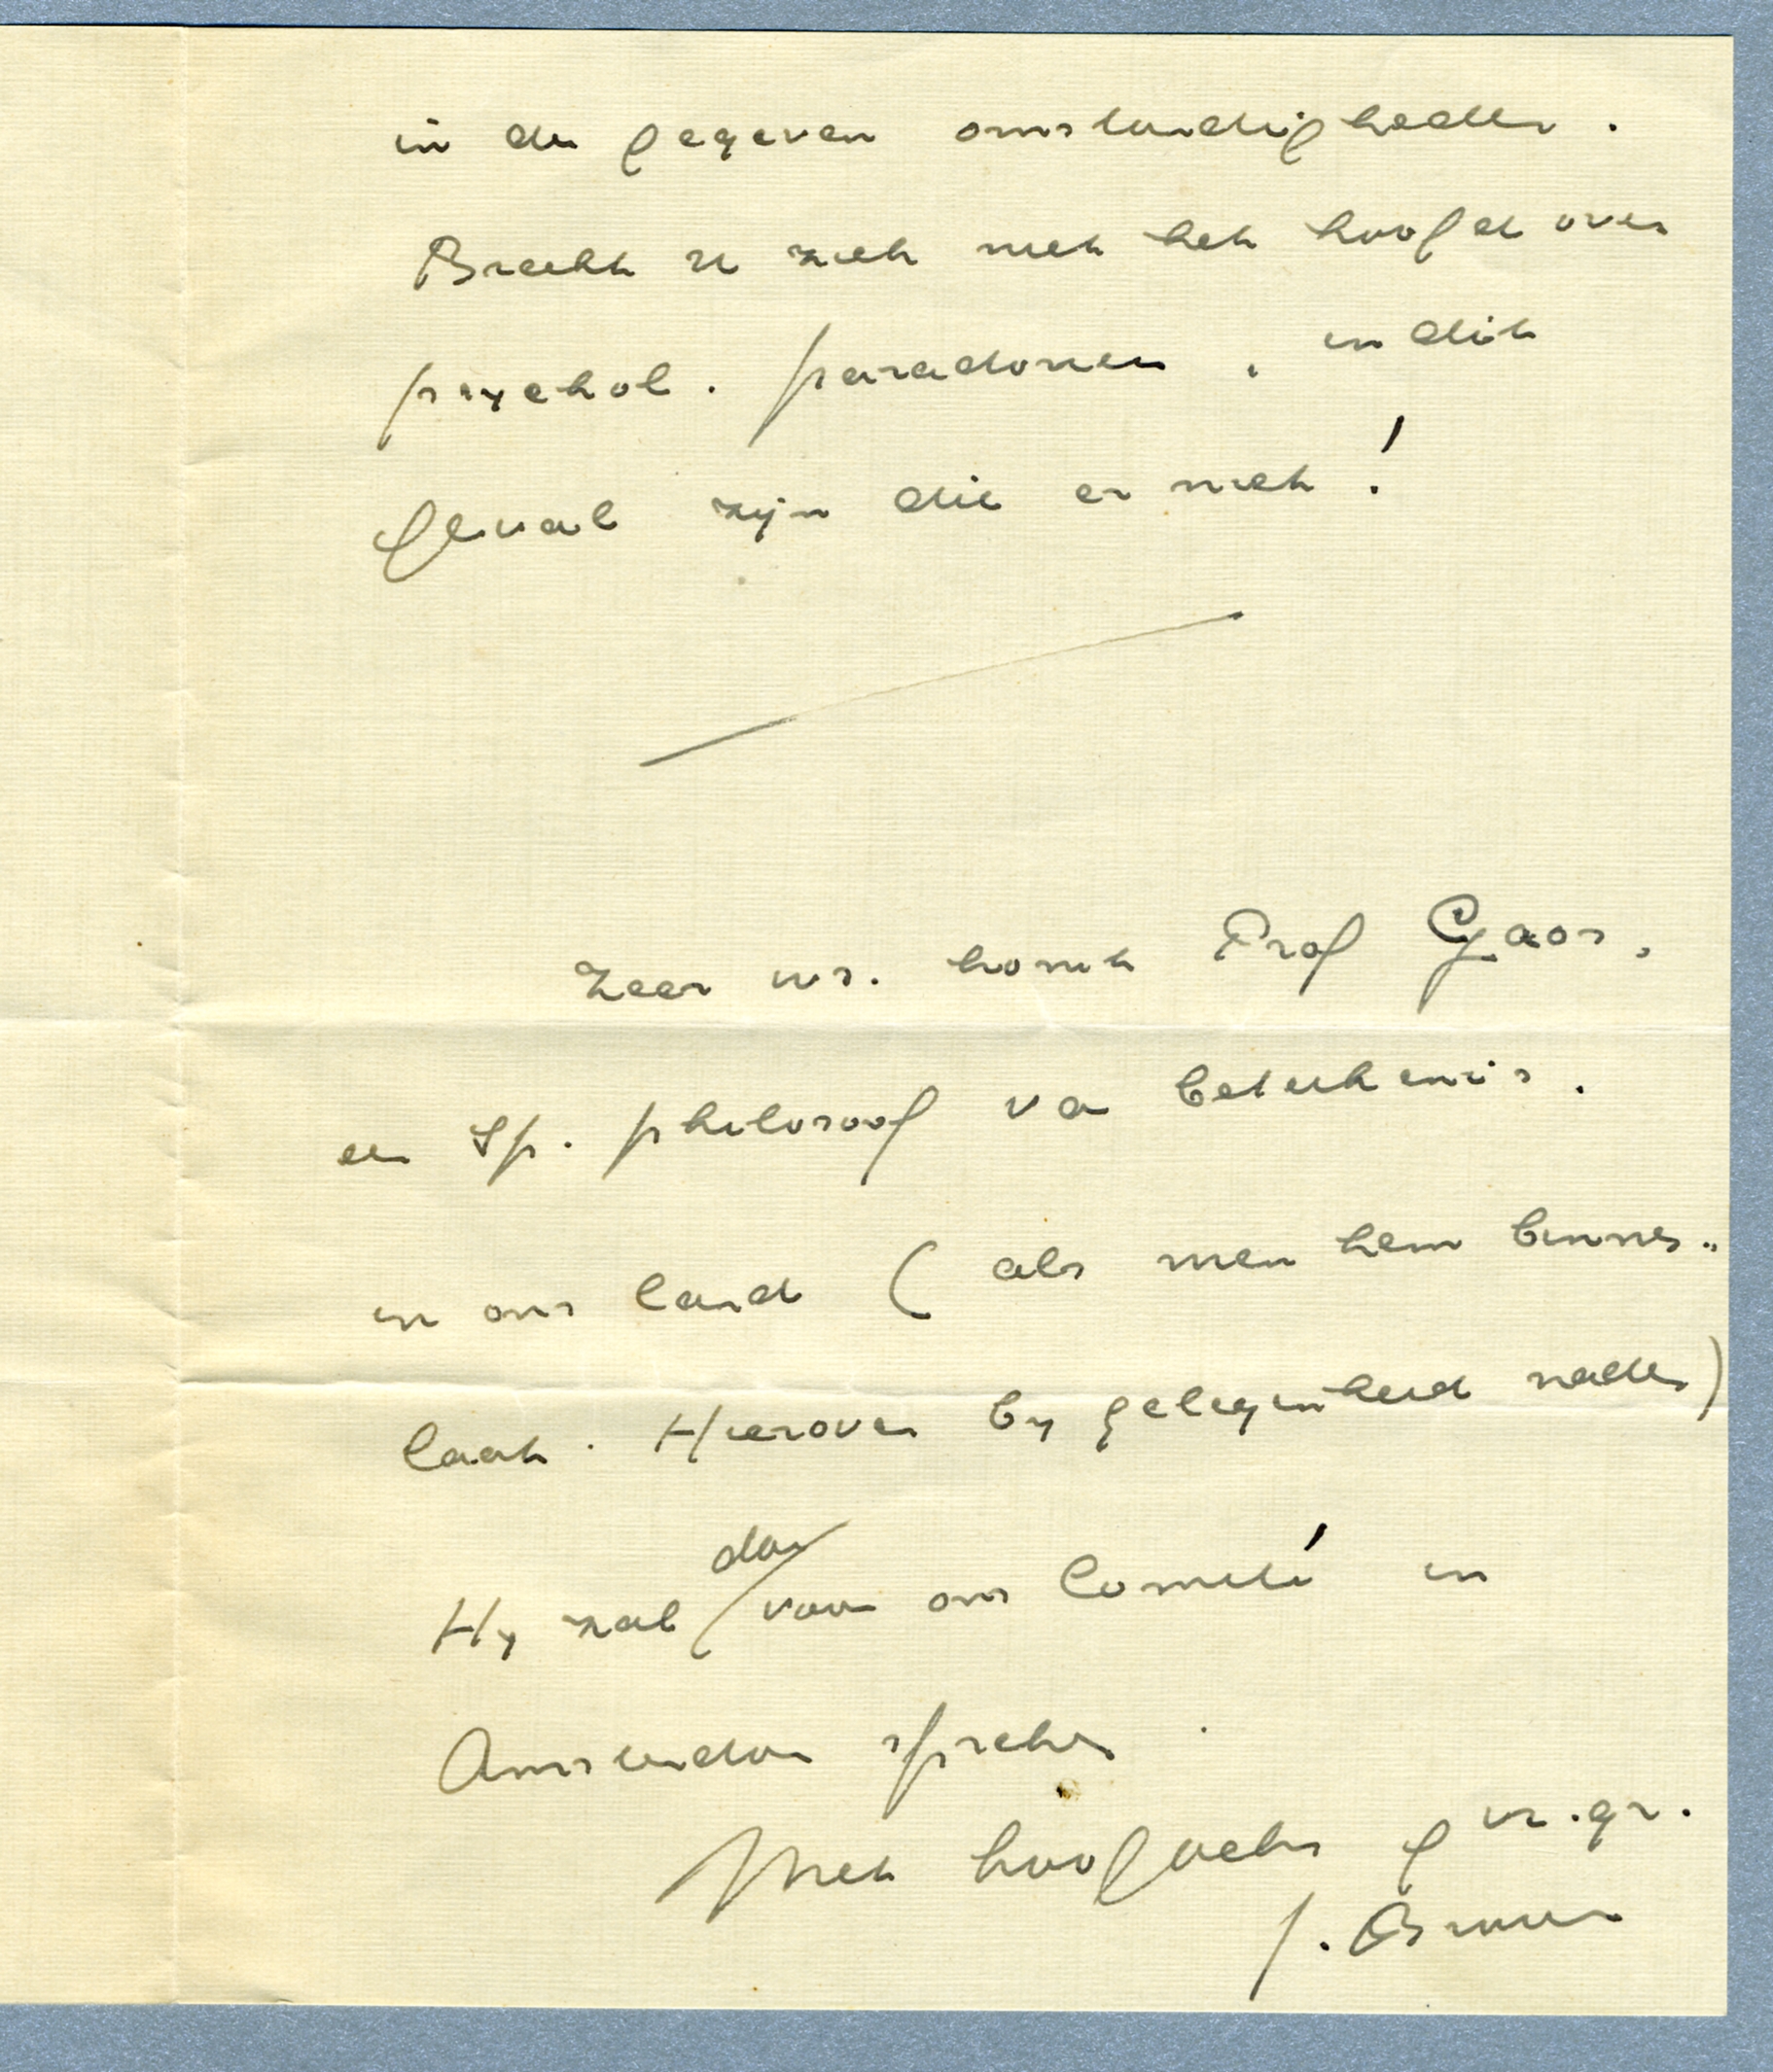 in de gegeven omstandigheden.
Breekt u zich niet het hoofd over
psychol. paradoxen, in dit
geval zijn die er niet!
Zeer ws. komt Prof Gaos,
een Sp. philosoof van betekenis.
in ons land (als men hem binnen
laat. Hierover by gelegenheid nader)
Hy zal dan voor ons Comité in
Amsterdam spreken
Met hoogacht. & vr. gr.
J. Brouwer